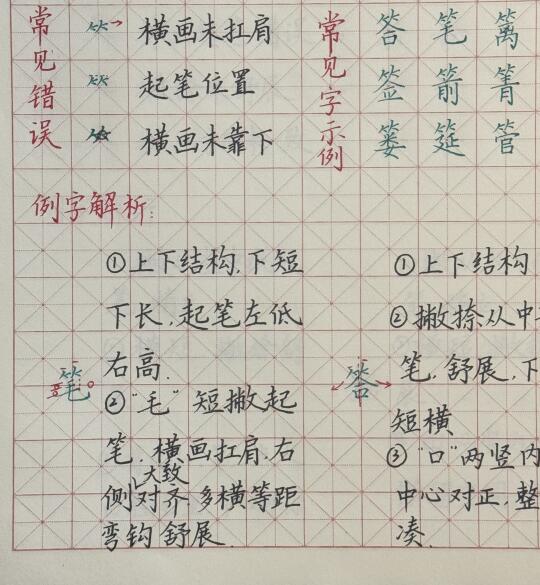 常见错误
横画未扛肩
起笔位置
横画未靠下
常见字示例
答 笔 篱
签 箭 箐
篓 筵 管
例字解析:
笔
①上下结构,下短
下长,起笔左低
右高.
②“毛”短撇起
笔,横画扛肩,右
侧大致对齐,多横等距
弯钩舒展.
答
①上下结构
②撇捺从中
笔,舒展,下
短横
③“口”两竖内
中心对正,整
凑.